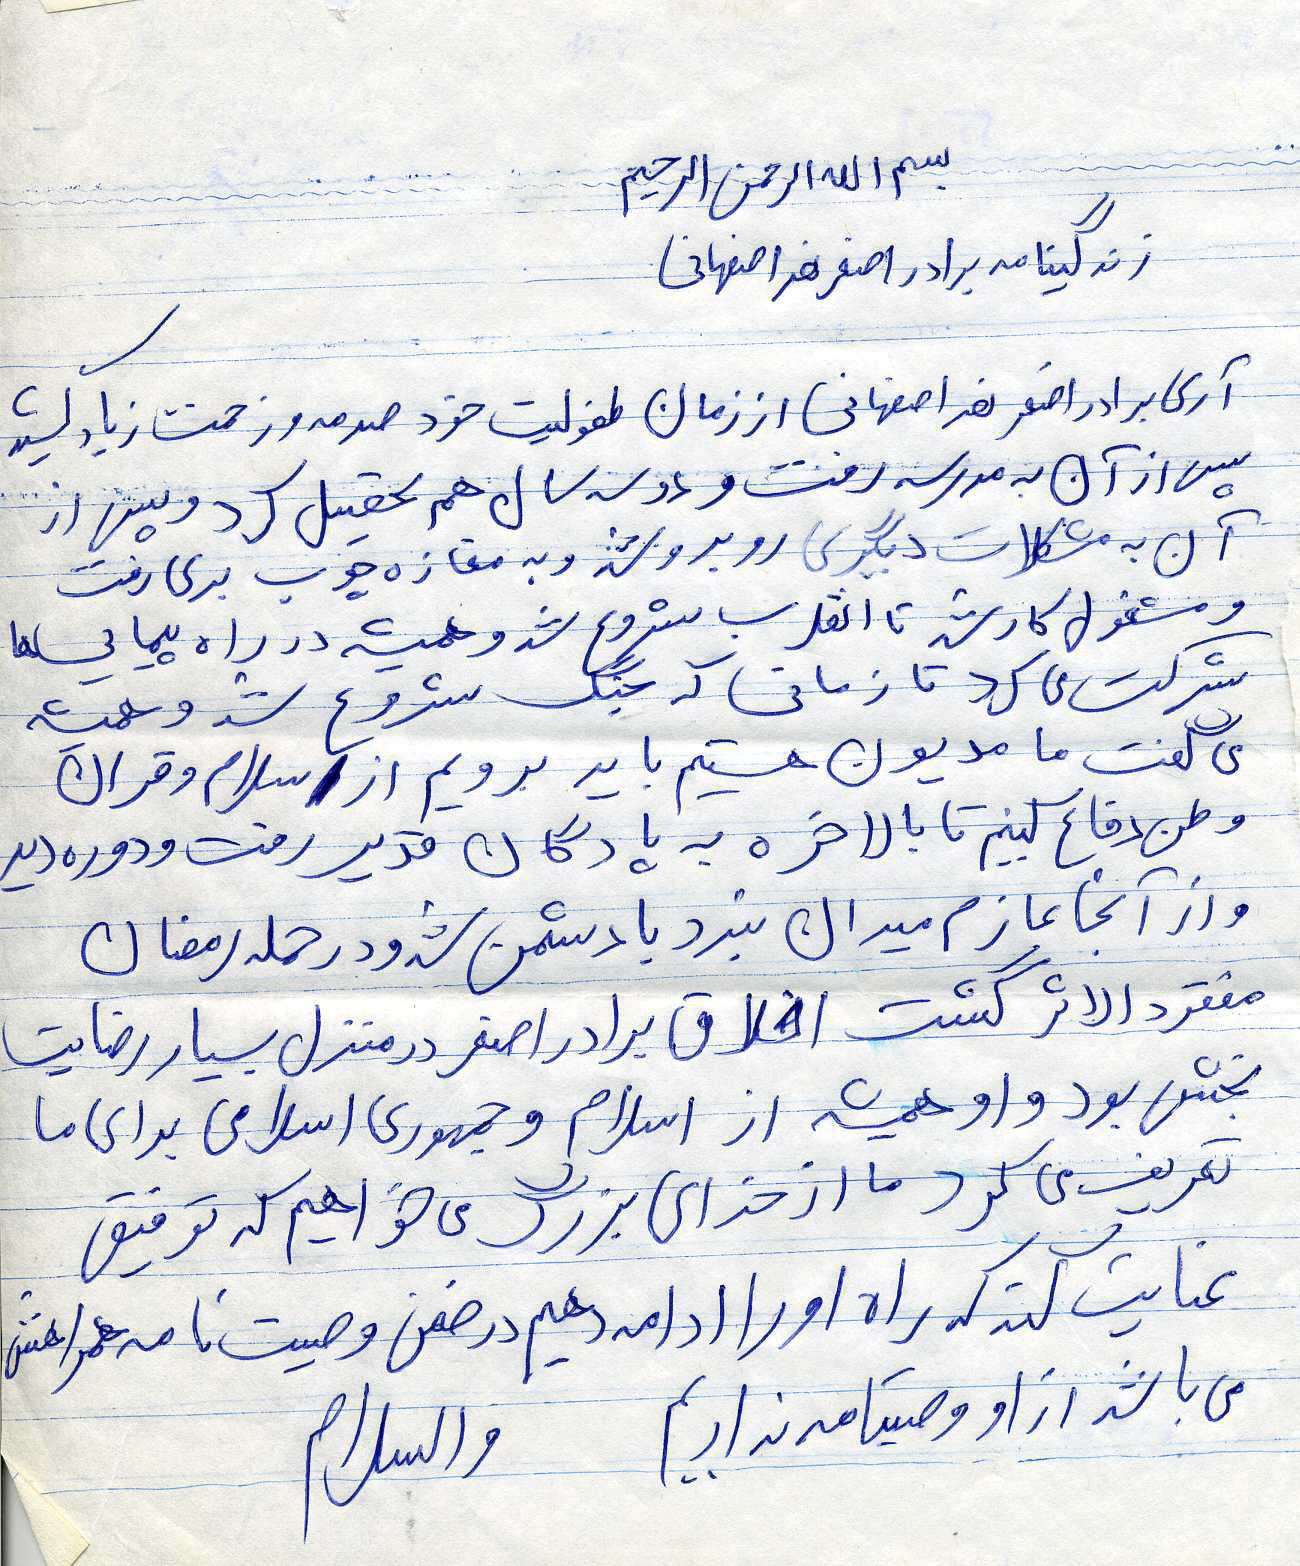 بسم الله الرحمن الرحیم
زندگینامه برادر اصغر نصر اصفهانی
آری برادر اصغر نصر اصفهانی از زمان طفولیت خود صدمه و زحمت زیاد کشید
پس از آن به مدرسه رفت و دو سه سال هم تحصیل کرد و پس از
آن به مشکلات دیگری روبرو شد و به مغازه چوب بری رفت
و مشغول کار شد تا انقلاب شروع شد و همیشه در راه پیمایی ها
شرکت می کرد تا زمانی که جنگ شروع شد و همیشه
می گفت ما مدیون هستیم باید برویم از اسلام و قران
وطن دفاع کنیم تا بالاخره به پادگان غدیر رفت و دوره دید
و از آنجا عازم میدان نبرد با دشمن شد و در حمله رمضان
مفقرد الاثر گشت اخلاق برادر اصغر در منزل بسیار رضایت
بخش بود و او همیشه از اسلام و جمهوری اسلامی برای ما
تعریف می کرد ما از خدای بزرگ می خواهیم که توفیق
عنایت کند که راه او را ادامه دهیم در ضمن وصیت نامه همراهش
می باشد از او وصیتنامه نداریم والسلام